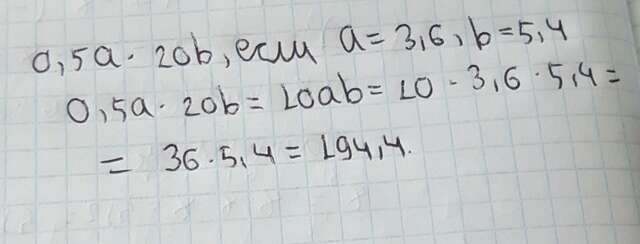 0,5a · 20b, если a = 3,6, b = 5,4
0,5a · 20b = 10ab = 10 · 3,6 · 5,4 =
= 36 · 5,4 = 194,4.